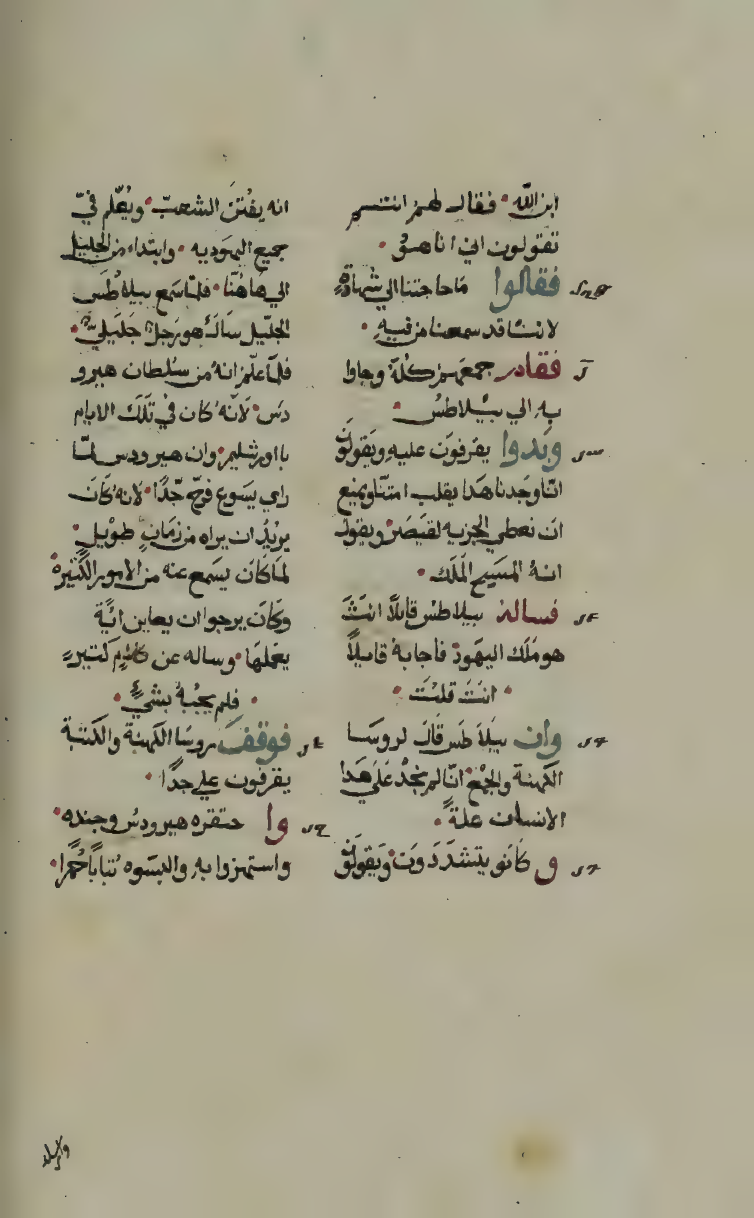 ابن الله فقال لهم انتم
تقولون اني انا هو
فقالوا ما حاجتنا الي شهاده
لاننا قد سمعنا من فيه
فقام جمعهم كله وجاوا
به الي بيلاطس
وبدوا يقرفون عليه ويقولون
انا وجدنا هدا يقلب امتنا ويمنع
ان نعطي الجزيه لقيصر ويقول
انه المسيح الملك
فساله بيلاطس قايلا انت
هو ملك اليهود فاجابه قايلا
انت قلت
وان بيلاطس قال لروسا
الكهنة والجمع انا لم نجد علي هدا
الانسان علة
و كانو يتشددون ويقولون
انه يفتن الشعب ويعلم في
جميع اليهوديه وابتداء من الجليل
الي هاهنا فلما سمع بيلاطس
الجليل سال هو رجل جليلي
فلما علم انه من سلطان هيرو
دس لانه كان في تلك الايام
بااورشليم وان هيرودس لما
راي يسوع فرح جدا لانه كان
يريد ان يراه من زمان طويل
لما كان يسمع عنه من الامور الكثيره
وكان يرجوا ان يعاين اية
يعملها وساله عن كلام كتير
فلم يجبه بشي
فوقف روسا الكهنة والكتبة
يقرفون علي جدا
وا حتقره هيرودس وجنده
واستهزوا به والبسوه تيابا حمرا